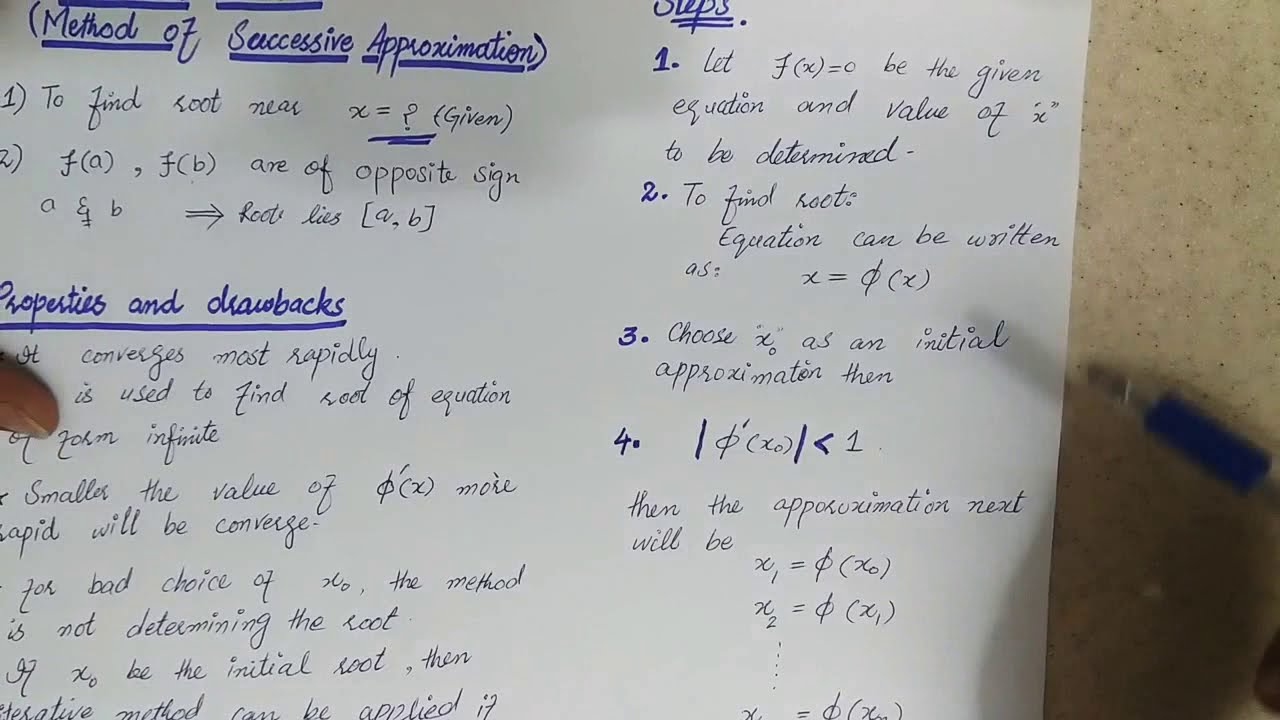 (Method of Successive Approximation)
1) To find root near x = ? (Given)
2) f(a), f(b) are of opposite sign
a & b ⟹ Roots lies [a, b]
Properties and drawbacks
It converges most rapidly.
is used to find root of equation
of form infinite
Smaller the value of ϕ'(x) more
rapid will be converge-
for bad choice of x₀, the method
is not determining the root.
If x₀ be the initial root, then
iterative method can be applied if
Steps.
1. Let f(x)=0 be the given
equation and value of "x"
to be determined-
2. To find root:
Equation can be written
as: x = ϕ(x)
3. Choose "x₀" as an initial
approximaton then
4. |ϕ'(x₀)| < 1.
then the approximation next
will be
x₁ = ϕ(x₀)
x₂ = ϕ(x₁)
= ϕ(xₙ)